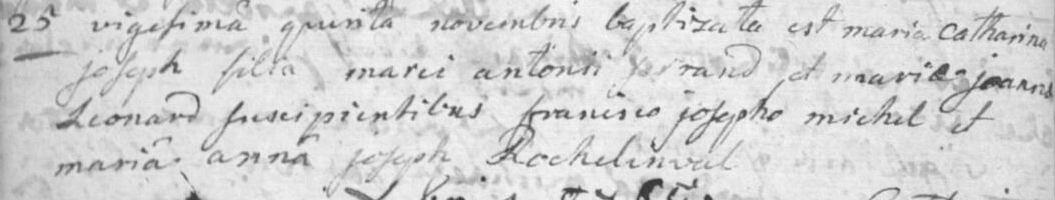 25 vigesimâ quintâ novembris baptizata est maria catharina
joseph filia marci antonii et mariæ joannis
Leonard suscipientibus francisco josepho michel et
mariâ annâ joseph Rochelinval